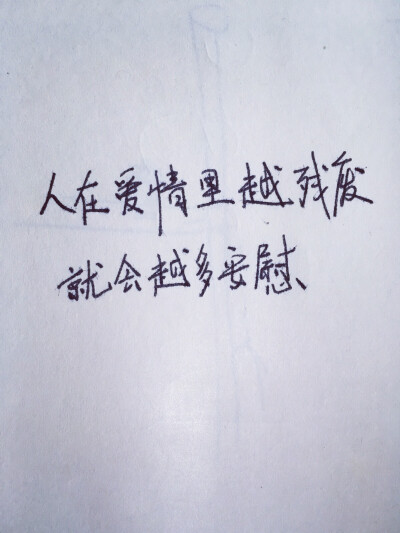 人在爱情里越残废
就会越多安慰、